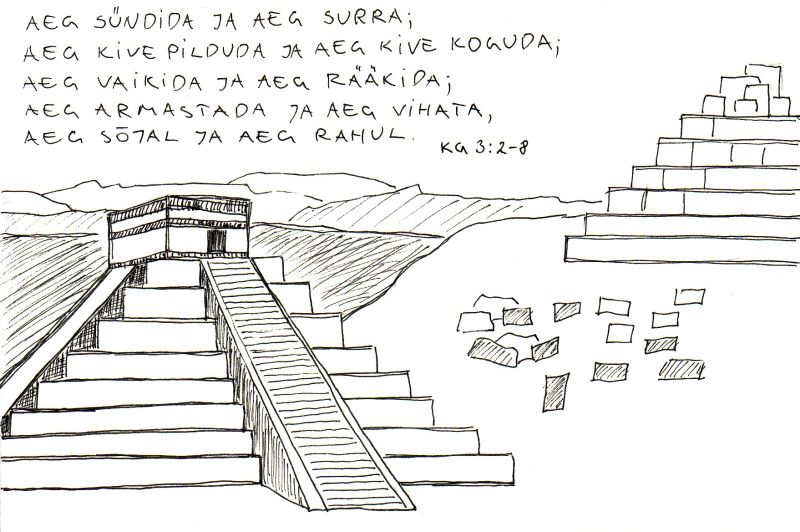 AEG SÜNDIDA JA AEG SURRA;
AEG KIVE PILDUDA JA AEG KIVE KOGUDA;
AEG VAIKIDA JA AEG RÄÄKIDA;
AEG ARMASTADA JA AEG VIHATA,
AEG SÕJAL JA AEG RAHUL.
KG 3:2-8